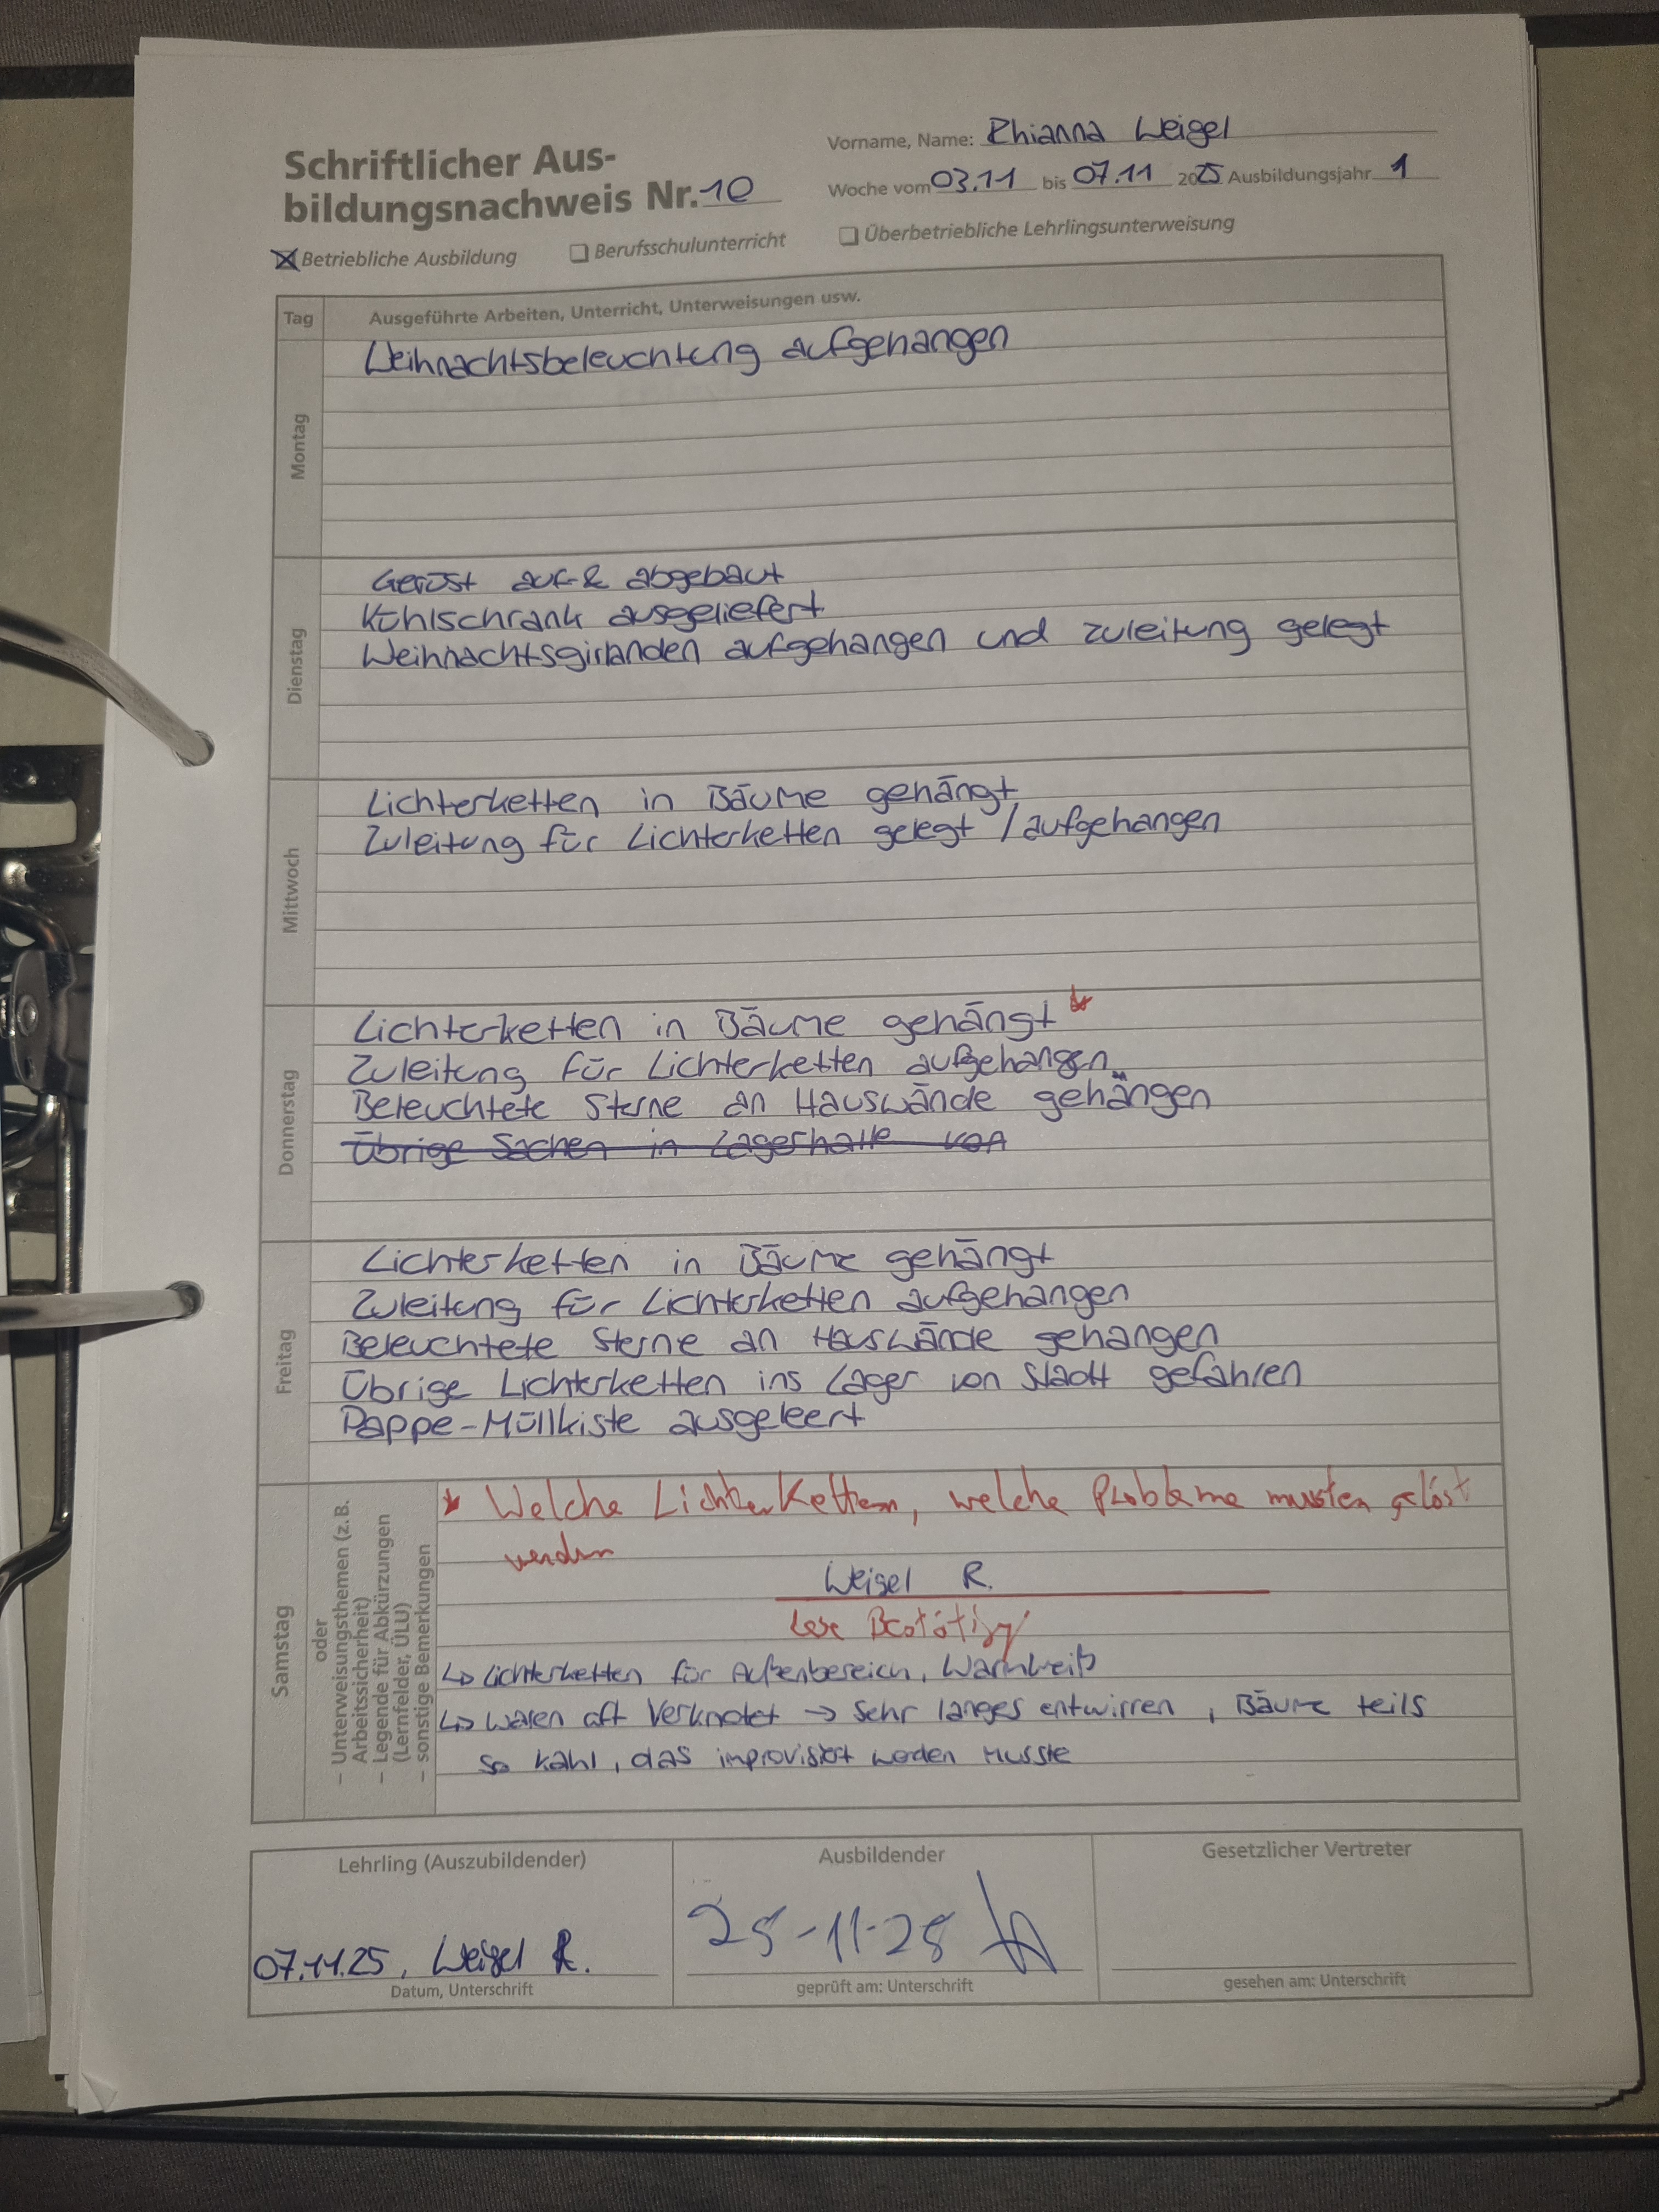 Schriftlicher Aus-
bildungsnachweis Nr. 10
Vorname, Name: Rhianna Weigel
Woche vom 03.11 bis 07.11 2025 Ausbildungsjahr 1
Betriebliche Ausbildung Berufsschulunterricht Überbetriebliche Lehrlingsunterweisung
Tag Ausgeführte Arbeiten, Unterricht, Unterweisungen usw.
Montag
Weihnachtsbeleuchtung aufgehangen
Dienstag
Gerüst auf- & abgebaut
Kühlschrank ausgeliefert
Weihnachtsgirlanden aufgehangen und Zuleitung gelegt
Mittwoch
Lichterketten in Bäume gehängt
Zuleitung für Lichterketten gelegt / aufgehangen
Donnerstag
Lichterketten in Bäume gehängt *
Zuleitung für Lichterketten aufgehangen
Beleuchtete Sterne an Hauswände gehängen
Übrige Sachen in Lagerhalle von
Freitag
Lichterketten in Bäume gehängt
Zuleitung für Lichterketten aufgehangen
Beleuchtete Sterne an Hauswände gehangen
Übrige Lichterketten ins Lager von Stadt gefahren
Pappe-Müllkiste ausgeleert
Samstag
oder
– Unterweisungsthemen (z. B.
Arbeitssicherheit)
– Legende für Abkürzungen
(Lernfelder, ÜLU)
– sonstige Bemerkungen
* Welche Lichterketten, welche Probleme mussten gelöst
werden
Weigel R.
Lese Bestätigung
↳ Lichterketten für Außenbereich, Warmweiß
↳ waren oft Verknotet → Sehr langes entwirren, Bäume teils
so kahl, das improvisiert werden musste
Lehrling (Auszubildender)
07.11.25, Weigel R.
Datum, Unterschrift
Ausbildender
25-11-28
geprüft am: Unterschrift
Gesetzlicher Vertreter
gesehen am: Unterschrift